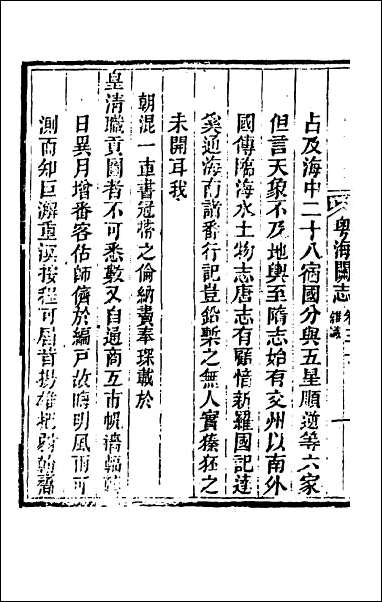 粤海關志 卷三十 雜識 一
占及海中二十八宿國分與五星順逆等六家
但言天象不及地輿至隋志始有交州以南外
國傳臨海水土物志唐志有顧愔新羅國記達
奚通海南諸番行記豈鉛槧之無人實獉狉之
未開耳我
朝混一車書冠帶之倫納贄奉琛載於
皇清職貢圖者不可悉數又自通商互市帆檣輻輳
日異月增番客估師儕於編戶故晦明風雨可
測而知巨澥重溟按程可屆昔揚雄把弱翰齎